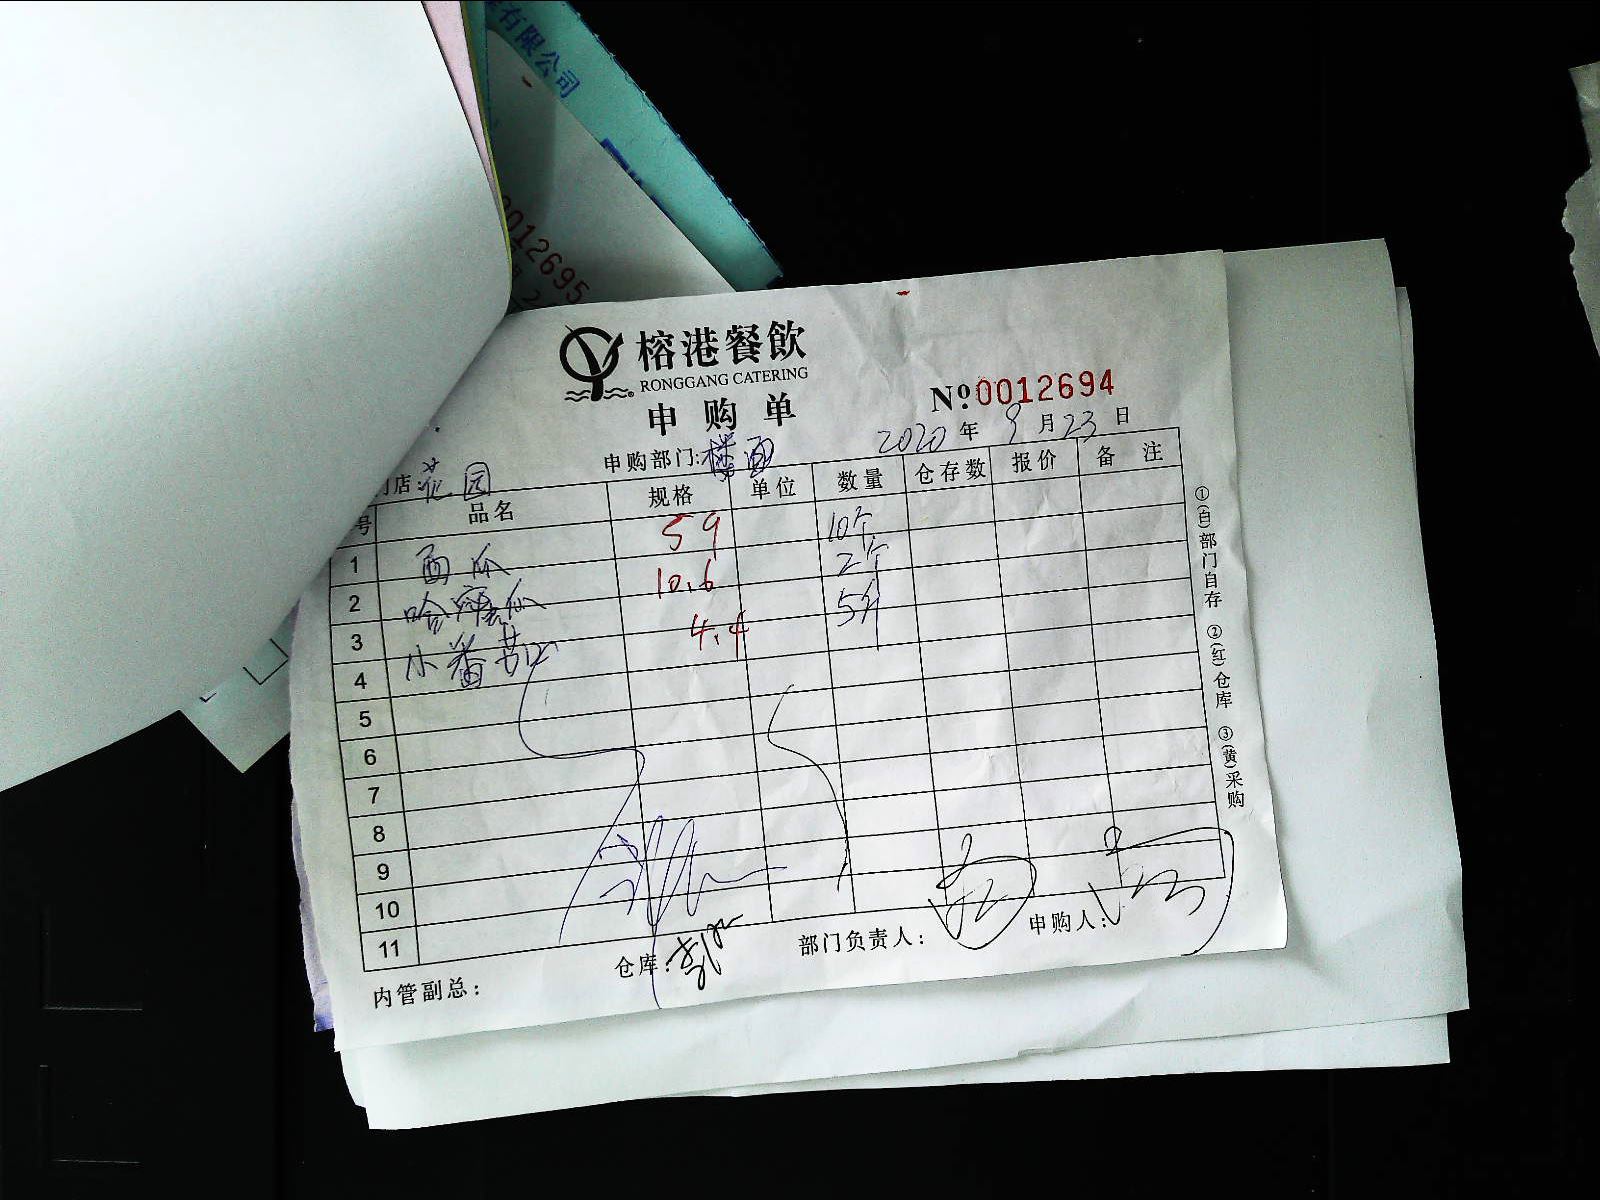 有限公司
0012695
榕港餐飲
RONGGANG CATERING
申购单
№0012694
店 花园 申购部门:楼面 2020年9月23日
号 品名 规格 单位 数量 仓存数 报价 备注
1 西瓜 59 10个
2 哈密瓜 10.6 2个
3 小番茄 4.4 5斤
4
5
6
7
8
9
10
11
内管副总: 仓库: 部门负责人: 申购人:
①(白)部门自存 ②(红)仓库 ③(黄)采购